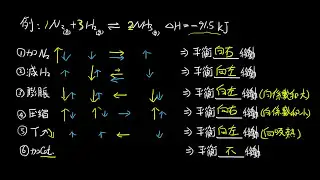 例: 1N₂(g)+3H₂(g) ⇌ 2NH₃(g) △H=-91.5 kJ
①加N₂ ↑↓ ↓ → ↑ ⇒ 平衡向右移動
②減H₂ ↑ ↓↑ ← ↓ ⇒ 平衡向左移動
③膨脹 ↓↑ ↓↑ ← ↓↓ ⇒ 平衡向左移動(向係數和大)
④压縮 ↑↓ ↑↓ → ↑↑ ⇒ 平衡向右移動(向係數和小)
⑤T↗ ↑ ↑ ← ↓ ⇒ 平衡向左移動(向吸熱)
⑥加Cat. ⇒ 平衡不移動